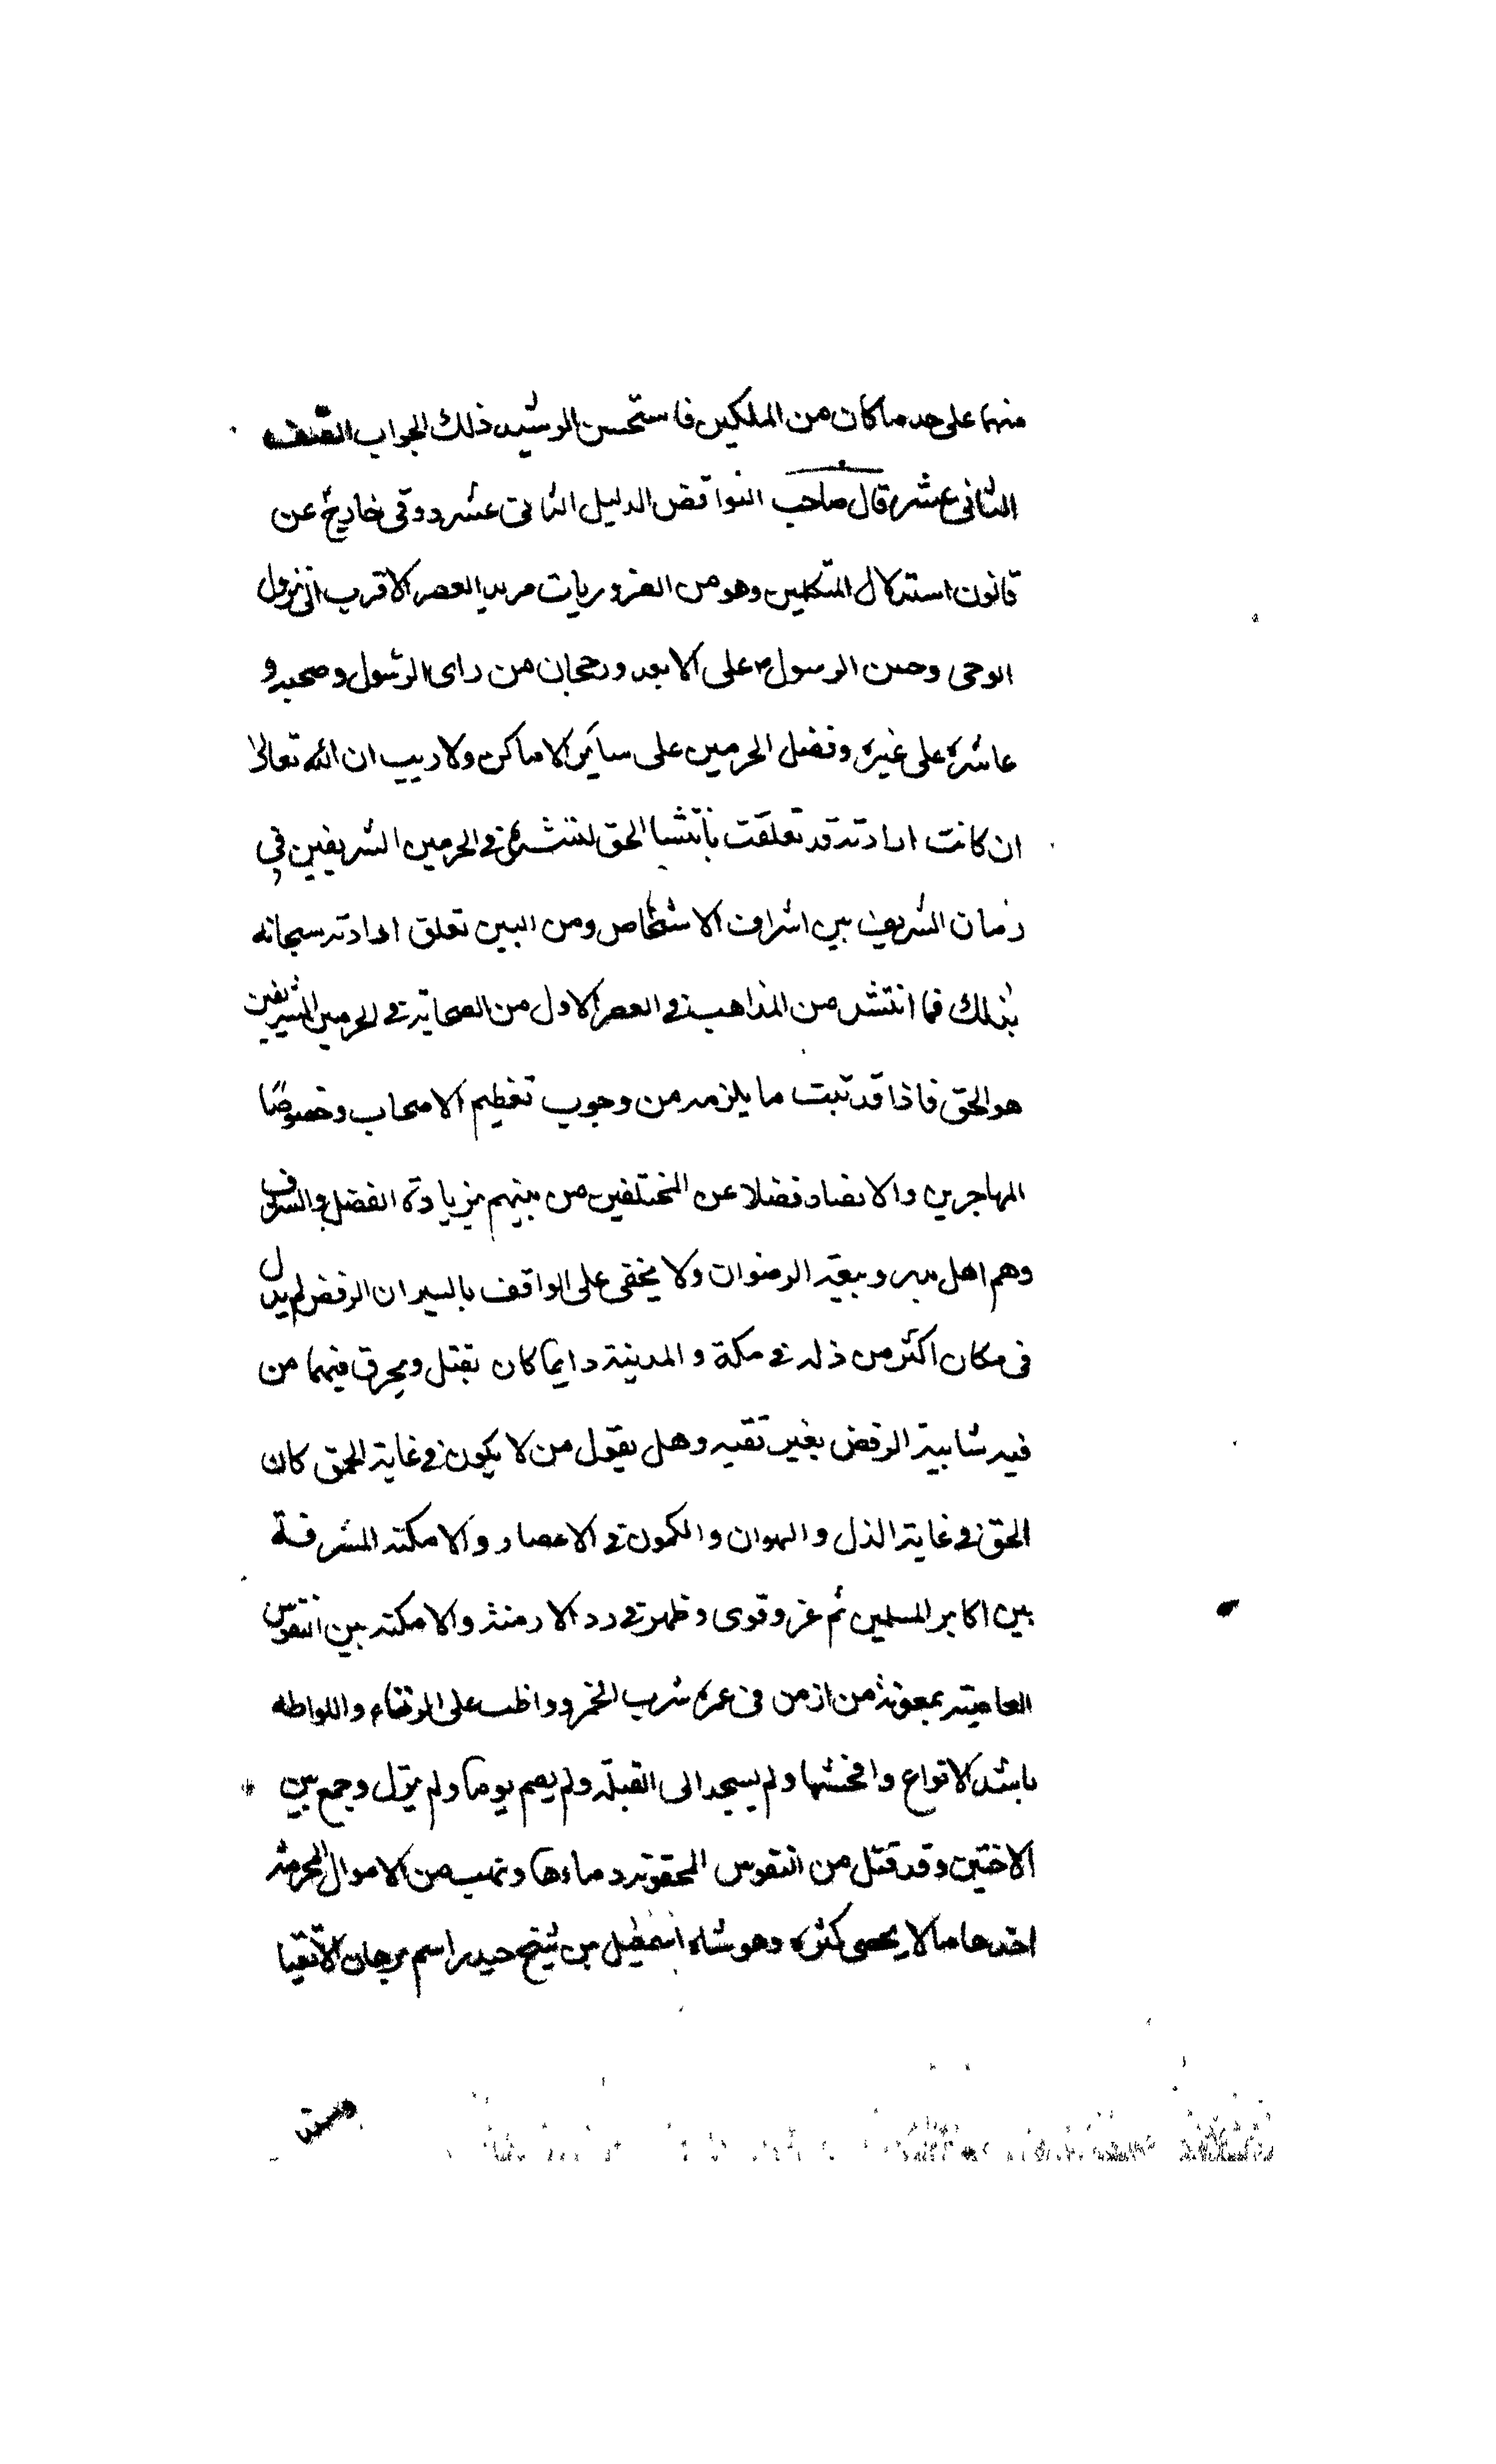 منهما على حد ما كان من الملكين فاستحسن الرشيد ذلك الجواب
الثانى عشر قال صاحب النواقض الدليل الثانى عشر دوقى خارج عن
قانون استدلال المتكلمين وهو من الضروريات مزيد العصر الاقرب الى نزول
الوحى وحس الرسول على الابعد ورجحان من راى الرسول وصحبه و
عاشره على غيره وفضل الحرمين على ساير الاماكن ولا ريب ان الله تعالى
ان كانت ارادته قد تعلقت بانتشا الحق لننشره فى الحرمين الشريفين فى
زمان الشريف بين اشراف الاشخاص ومن البين تعلق ارادته سبحانه
بذلك فما انتشر من المذاهب فى العصر الاول من الصحابة فى الحرمين الشريفين
هو الحق فاذا قد ثبت ما يلزمه من وجوب تعظيم الاصحاب وخصوصًا
المهاجرين والانصار فضلا عن المختلفين من بينهم بزيادة الفضل والشرف
وهم اهل بدر وبيعة الرضوان ولا يخفى على الواقف بالسير ان الرفض لم يذل
فى مكان اكثر من ذله فى مكة والمدينة دايما كان يقتل ويحرق فيهما من
فيه شايبة الرفض بغير تقيه وهل يقول من لا يكون فى غاية الحمق كان
الحق فى غاية الذل والهوان والكمون فى الاعصار والامكنة المشرفة
بين اكابر المسلمين ثم عز وقوى وظهر فى ردد الازمنة والامكنة بين النفوس
العامية بمعونة من ازمن فى عمره شرب الخمر وواظب على الزناء واللواطه
باشد الانواع وافحشها ولم يسجد الى القبلة ولم يصم يوما ولم يزل وجمع بين
الاختين وقد قتل من النفوس المحقونة دماءها ونهب من الاموال المحرمة
اخذها ما لا يحصى كثره وهو شاه اسمعيل بن شيخ حيدر اسم برهان الاتقيا